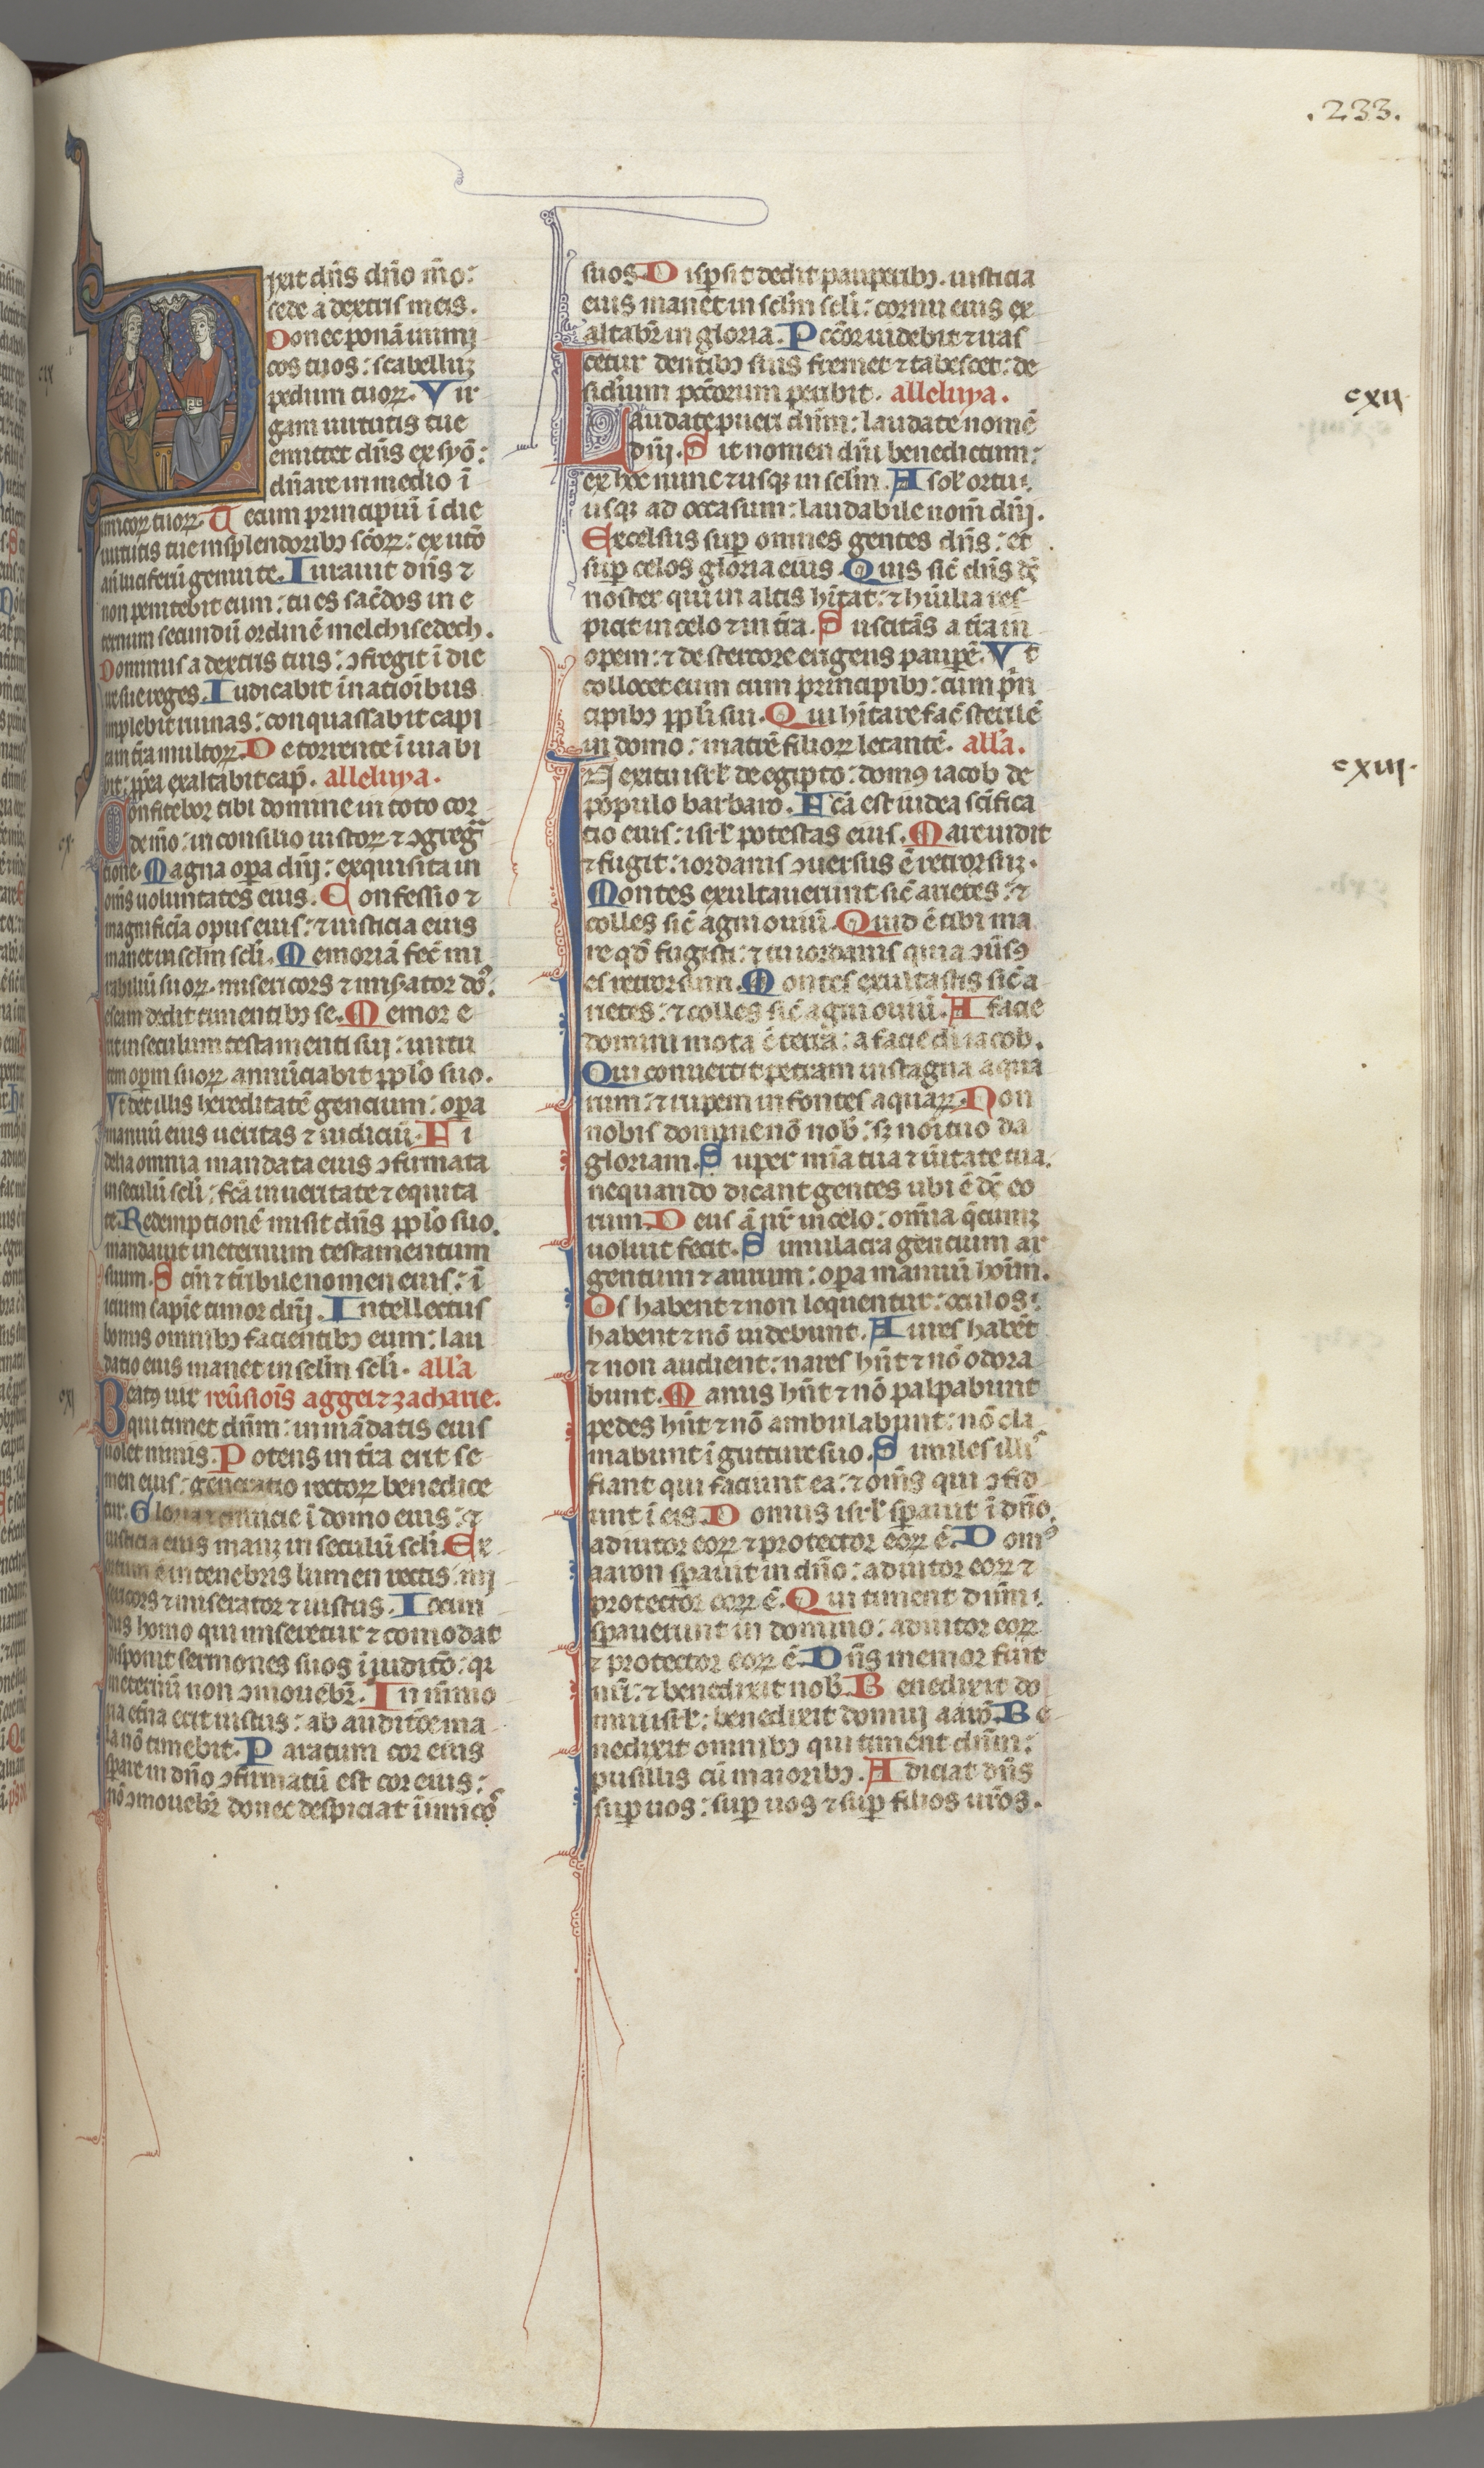 .233.
Dixit dñs dño mo:
sede a dextris meis.
Donec ponã inimi
cos tuos: scabelluz
pedum tuoꝝ. Vir
gam uirtutis tue
emittet dñs ex syõ:
dñare in medio ĩ
imicoꝝ tuoꝝ. Tecum principiũ ĩ die
uirtutis tue in splendoribꝫ scõꝝ: ex utõ
añ luciferũ genui te. Iurauit dñs ⁊
non penitebit eum: tu es sacẽdos in e
ternum secundũ ordinẽ melchisedech.
Dominus a dextris tuis: ↄfregit ĩ die
ire sue reges. Iudicabit in natioĩbus
implebit ruinas: conquassabit capi
ta in tĩra multoꝝ. De torrente ĩ uia bi
bit: ꝓpẽa exaltabit cap̃. alleluya.
cx
Confitebor tibi domine in toto cor
de mõ: in consilio iustoꝝ ⁊ ↄgrega
tione. Magna opa dñi: exquisita in
om̃s uoluntates eius. Confessio ⁊
magnificĩa opus eius: ⁊ iusticia eius
manet in sclm scli. Memoriã fec̃ mi
rabiliũ suoꝝ. misericors ⁊ misator do:
escam dedit timentibꝫ se. Memor e
rit in seculum testamenti sui: uirtu
tem opm suoꝝ annũciabit pplo suo.
Vt det illis hereditatẽ gencium: opa
manuũ eius ueritas ⁊ iudiciũ. Fi
delia omnia mandata eius ↄfirmata
in seculũ scli: fcã in ueritate ⁊ equita
te. Redemptionẽ misit dñs pplo suo.
mandauit in eternum testamentum
suum. Scm̃ ⁊ tĩribile nomen eius: ĩ
icium sapĩe timor dñi. Intellectus
bonus omnibꝫ facientibꝫ eum: lau
datio eius manet in sclm scli. alla
cxi
Beatꝰ uir reũsiois aggei ⁊ zacharie.
qui timet dñm: in mãdatis eius
uolet nimis. Potens in tĩra erit se
men eius: generatio rectoꝝ benedice
tur. Gloria ⁊ diuicie ĩ domo eius: ⁊
iusticia eius manꝫ in seculũ scli. Ex
ortum ẽ in tenebris lumen rectis: mi
sericors ⁊ miserator ⁊ iustus. Iocun
dus homo qui miseretur ⁊ comodat
disponit sermones suos ĩ iudicõ: qr
in eternũ non ↄmouebĩ. In mĩmo
ria etĩna erit iustus: ab auditõe ma
la nõ timebit. Paratum cor eius
spare in dño ↄfirmatũ est cor eius:
nõ ↄmouebĩ donec despiciat ĩimicꝰ
suos. Dispsit dedit pauperibꝫ. iusticia
eius manet in sclm scli: cornu eius ex
altabĩ in gloria. Pccõr uidebit ⁊ iras
cetur dentibꝫ suis fremet ⁊ tabescet: de
sidĩum pccõrum peribit. alleluya.
cxii
Laudate pueri dñm: laudate nomẽ
dñi. Sit nomen dñi benedictum:
ex hoc nunc ⁊ usqꝫ in sclm. A sol ortu:
usqꝫ ad occasum: laudabile nom̃ dñi.
Excelsus sup omnes gentes dñs: et
sup celos gloria eius. Quis sic̃ dñs dẽ
noster qui in altis hĩtat: ⁊ hũilia res
picit in celo ⁊ in tĩra. Suscitãs a tĩra in
opem: ⁊ de stercore erigens paupẽ. Vt
collocet eum cum principibꝫ: cum prĩ
cipibꝫ ppli sui. Qui hĩtare fac̃ sterilẽ
in domo: matrẽ filioꝝ letantẽ. alla.
cxiii.
In exitu isrl de egipto: domꝰ iacob de
populo barbaro. Fcã est iudea scĩfica
tio eius: isrl potestas eius. Mare uidit
⁊ fugit: iordanis ↄuersus ẽ retrorsuꝫ.
Montes exultauerunt sic̃ arietes: ⁊
colles sic̃ agni ouiũ. Quid ẽ tibi ma
re qđ fugisti: ⁊ tu iordanis quia ↄũsꝰ
es retrorsum. Montes exultastis sic̃ a
rietes: ⁊ colles sic̃ agni ouiũ. A facie
domini mota ẽ terra: a facie di iacob.
Qui conuertit petram in stagna aqua
rum: ⁊ rupem in fontes aquaꝝ. Non
nobis domine nõ nob: sꝫ noĩi tuo da
gloriam. Super mĩa tua ⁊ ũitate tua.
nequando dicant gentes ubi ẽ dẽ eo
rum. Deus ã nr̃ in celo: omĩa q̃cumqꝫ
uoluit fecit. Simulacra gencium ar
gentum ⁊ aurum: opa manuũ hoĩm.
Os habent ⁊ non loquentur: oculos:
habent ⁊ nõ uidebunt. Aures habẽt
⁊ non audient: nares hñt ⁊ nõ odora
bunt. Manus hñt ⁊ nõ palpabunt
pedes hñt ⁊ nõ ambulabunt: nõ cla
mabunt ĩ gutture suo. Similes illis
fiant qui faciunt ea: ⁊ om̃s qui ↄfid
unt ĩ eis. Domus isrl sparuit ĩ dño.
adiutor eoꝝ ⁊ protector eoꝝ ẽ. Domꝰ
aaron sparuit in dño: adiutor eoꝝ ⁊
protector eoꝝ ẽ. Qui timent dñm:
sparuerunt in domino: adiutor eoꝝ
⁊ protector eoꝝ ẽ. Dñs memor fuit
nri: ⁊ benedixit nob. Benedixit do
mui isrl: benedixit domui aarõ. Be
nedixit omnibꝫ qui timent dñm:
pusillis cũ maioribꝫ. Adiciat dñs
sup uos: sup uos ⁊ sup filios uros.